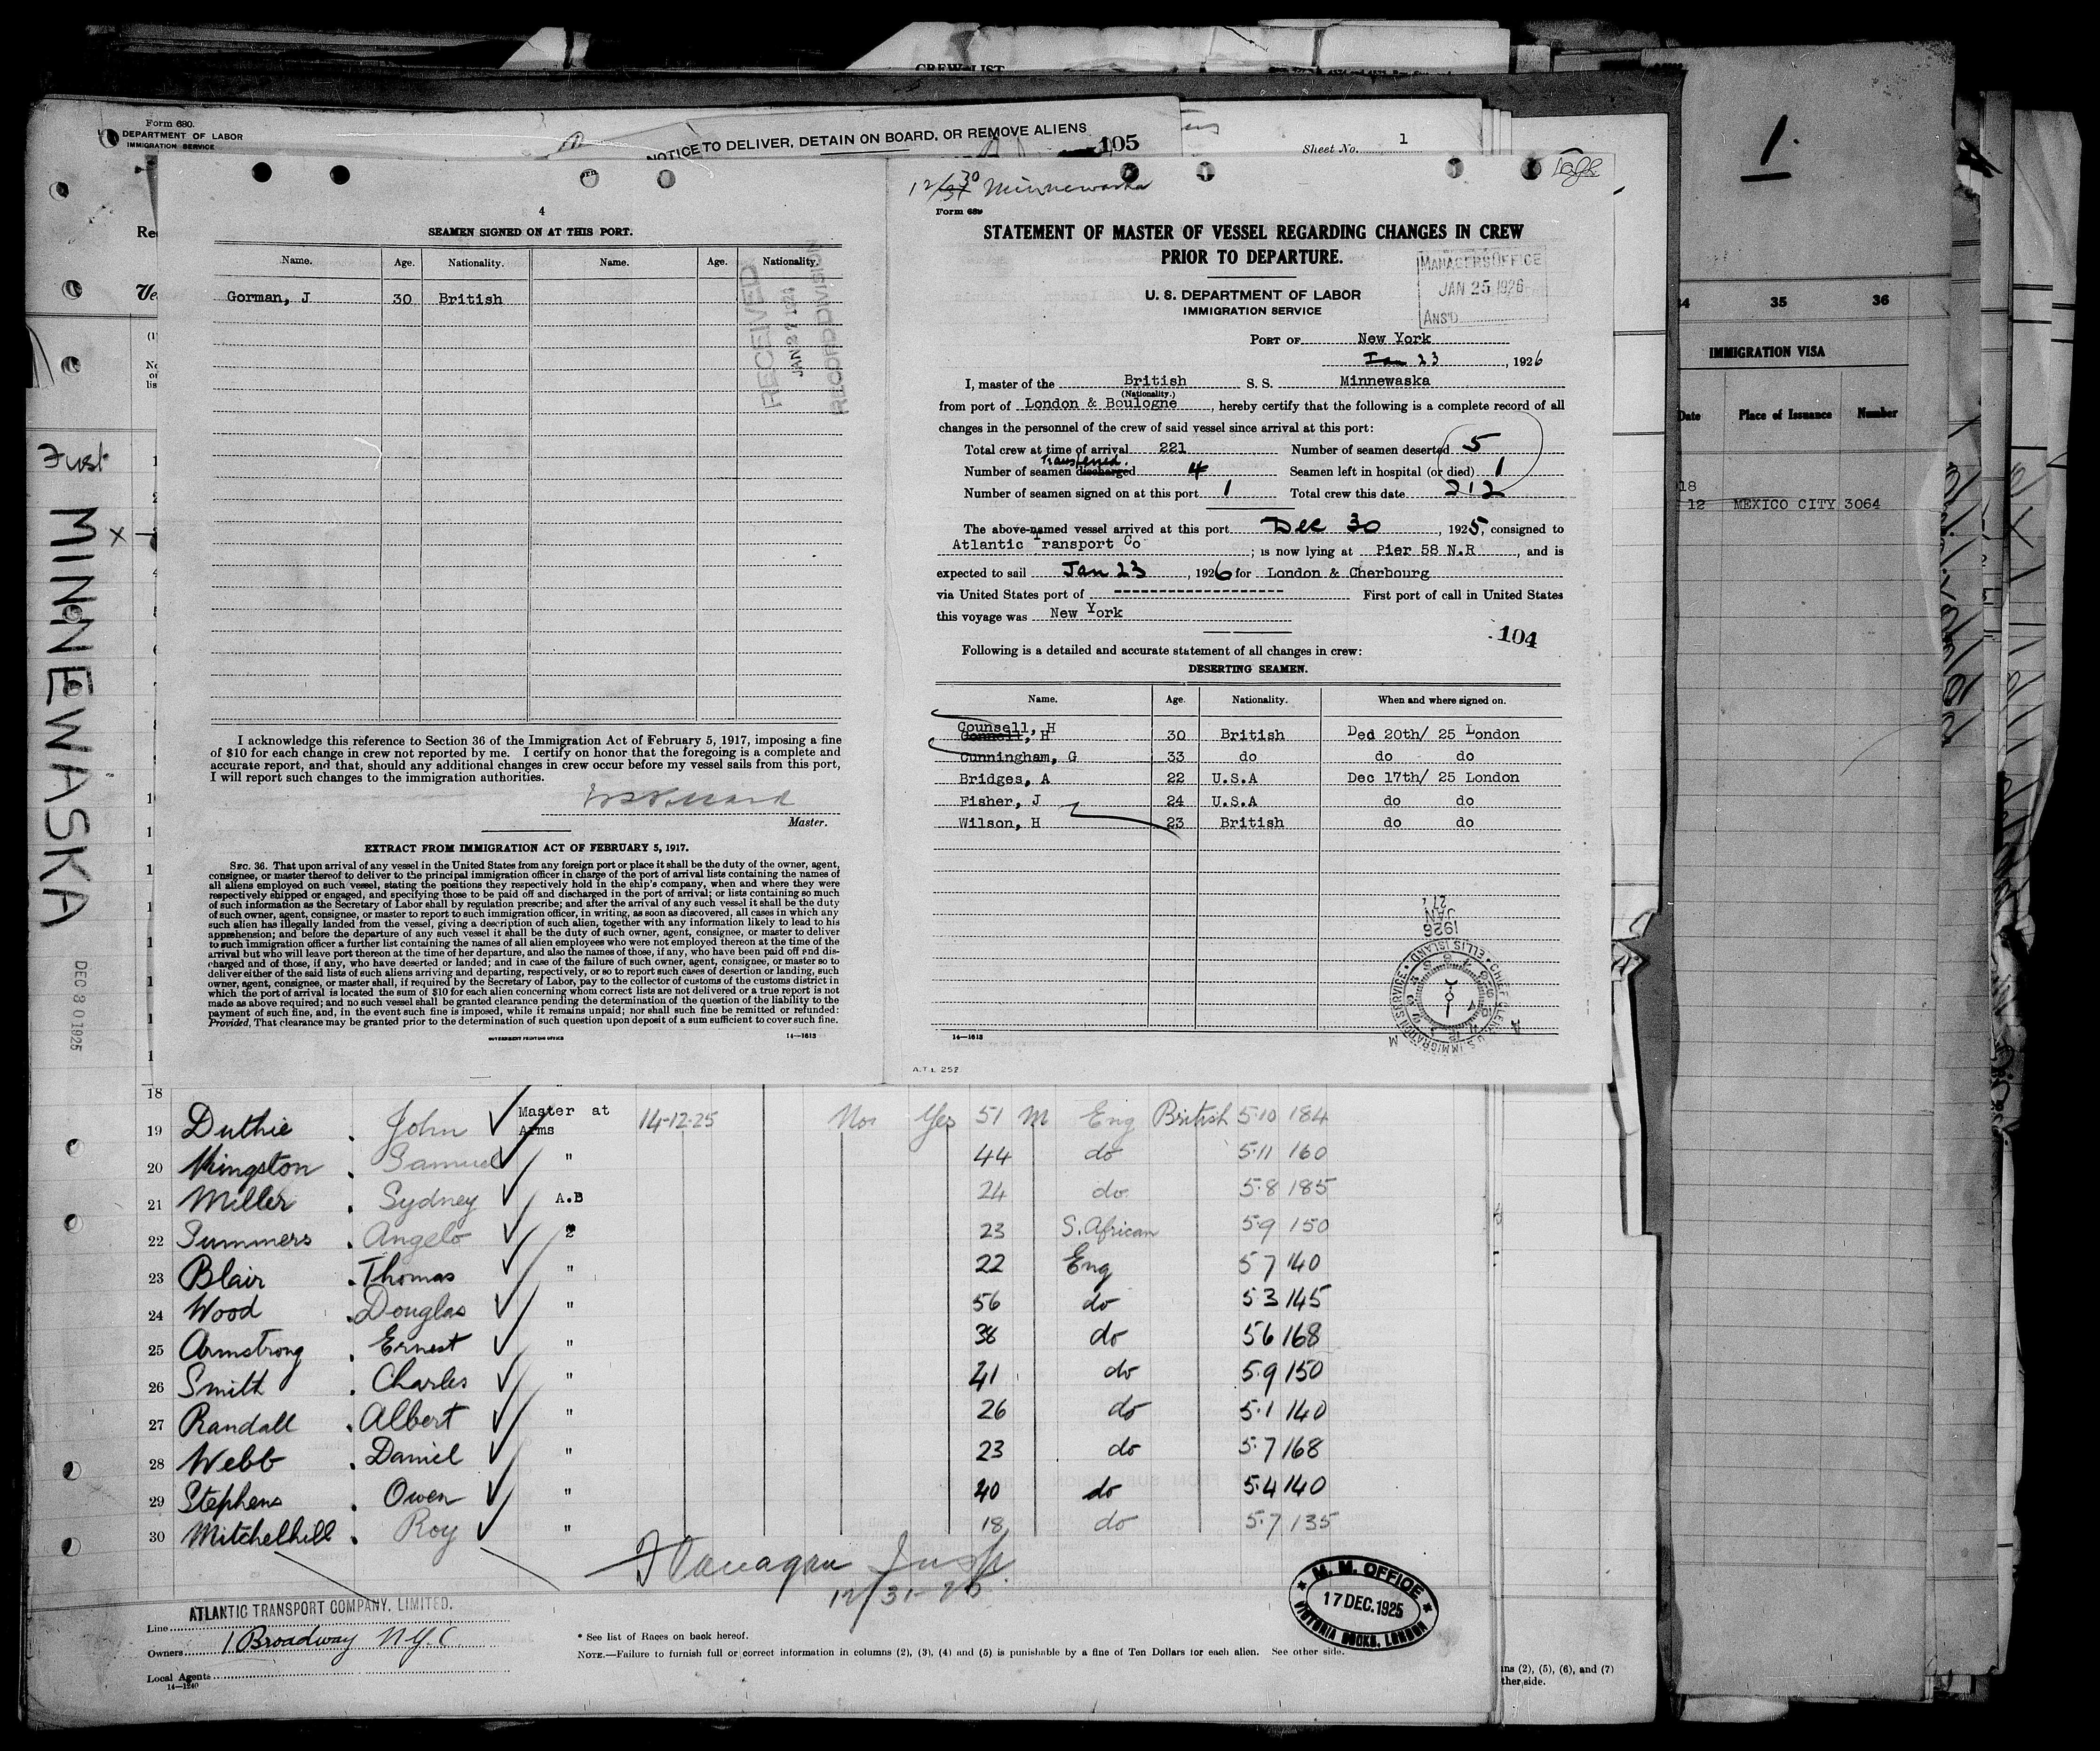 CREW LIST
Form 680.
DEPARTMENT OF LABOR
IMMIGRATION SERVICE
NOTICE TO DELIVER, DETAIN ON BOARD, OR REMOVE ALIENS
105
Sheet No. 1
1.
4
SEAMEN SIGNED ON AT THIS PORT.
Name. Age. Nationality. Name. Age. Nationality.
Gorman, J 30 British
RECEIVED
JAN 27 1926
RECORD DIVISION
I acknowledge this reference to Section 36 of the Immigration Act of February 5, 1917, imposing a fine
of $10 for each change in crew not reported by me. I certify on honor that the foregoing is a complete and
accurate report, and that, should any additional changes in crew occur before my vessel sails from this port,
I will report such changes to the immigration authorities.
Master.
EXTRACT FROM IMMIGRATION ACT OF FEBRUARY 5, 1917.
SEC. 36. That upon arrival of any vessel in the United States from any foreign port or place it shall be the duty of the owner, agent,
consignee, or master thereof to deliver to the principal immigration officer in charge of the port of arrival lists containing the names of
all aliens employed on such vessel, stating the positions they respectively hold in the ship's company, when and where they were
respectively shipped or engaged, and specifying those to be paid off and discharged in the port of arrival; or lists containing so much
of such information as the Secretary of Labor shall by regulation prescribe; and after the arrival of any such vessel it shall be the duty
of such owner, agent, consignee, or master to report to such immigration officer, in writing, as soon as discovered, all cases in which any
such alien has illegally landed from the vessel, giving a description of such alien, together with any information likely to lead to his
apprehension; and before the departure of any such vessel it shall be the duty of such owner, agent, consignee, or master to deliver
to such immigration officer a further list containing the names of all alien employees who were not employed thereon at the time of the
arrival but who will leave port thereon at the time of her departure, and also the names of those, if any, who have been paid off and dis-
charged and of those, if any, who have deserted or landed; and in case of the failure of such owner, agent, consignee, or master so to
deliver either of the said lists of such aliens arriving and departing, respectively, or so to report such cases of desertion or landing, such
owner, agent, consignee, or master shall, if required by the Secretary of Labor, pay to the collector of customs of the customs district in
which the port of arrival is located the sum of $10 for each alien concerning whom correct lists are not delivered or a true report is not
made as above required; and no such vessel shall be granted clearance pending the determination of the question of the liability to the
payment of such fine, and, in the event such fine is imposed, while it remains unpaid; nor shall such fine be remitted or refunded:
Provided, That clearance may be granted prior to the determination of such question upon deposit of a sum sufficient to cover such fine.
GOVERNMENT PRINTING OFFICE 14—1613
12/30 Minnewaska
Form 689
STATEMENT OF MASTER OF VESSEL REGARDING CHANGES IN CREW
PRIOR TO DEPARTURE.
U. S. DEPARTMENT OF LABOR
IMMIGRATION SERVICE
MANAGERS OFFICE
JAN 25 1926
ANS'D
PORT OF New York
Jan 23, 1926
I, master of the British S. S. Minnewaska
(Nationality.)
from port of London & Boulogne, hereby certify that the following is a complete record of all
changes in the personnel of the crew of said vessel since arrival at this port:
Total crew at time of arrival 221 Number of seamen deserted 5
Transferred.
Number of seamen discharged 4 Seamen left in hospital (or died) 1
Number of seamen signed on at this port 1 Total crew this date 212
The above-named vessel arrived at this port Dec 30, 1925, consigned to
Atlantic Transport Co; is now lying at Pier 58 N.R, and is
expected to sail Jan 23, 1926 for London & Cherbourg
via United States port of ---------- First port of call in United States
this voyage was New York
104
Following is a detailed and accurate statement of all changes in crew:
DESERTING SEAMEN.
Name. Age. Nationality. When and where signed on.
Counsell, H
Connell, H 30 British Ded 20th/ 25 London
Cunningham, G 33 do do do
Bridges, A 22 U.S.A Dec 17th/ 25 London
Fisher, J 24 U.S.A do do
Wilson, H 23 British do do
1926
JAN
27
CHIEF CLERK U.S. IMMIGRATION SERVICE ELLIS ISLAND
14—1613
A.T.L. 257
34 35 36
IMMIGRATION VISA
Date Place of Issuance Number
18
12 MEXICO CITY 3064
First
MINNEWASKA
DEC 30 1925
18
19 Duthie . John Master at Arms 14-12-25 Nor Yes 51 M Eng British 5·10 184
20 Kingston . Samuel " 44 do 5·11 160
21 Miller . Sydney A.B 24 do 5·8 185
22 Summers . Angelo " 23 S. African 5·9 150
23 Blair . Thomas " 22 Eng 5 7 140
24 Wood . Douglas " 56 do 5 3 145
25 Armstrong . Ernest " 38 do 5 6 168
26 Smith . Charles " 41 do 5·9 150
27 Randall . Albert " 26 do 5·1 140
28 Webb . Daniel " 23 do 5·7 168
29 Stephens . Owen " 40 do 5·4 140
30 Mitchelhill . Roy " 18 do 5·7 135
Flanagan Insp.
12/31-25
Line ATLANTIC TRANSPORT COMPANY, LIMITED.
Owners 1 Broadway N.Y.C.
Local Agents
14—1240
* See list of Races on back hereof.
NOTE.—Failure to furnish full or correct information in columns (2), (3), (4) and (5) is punishable by a fine of Ten Dollars for each alien. See other side.
M. M. OFFICE
17 DEC. 1925
VICTORIA DOCKS, LONDON
ns (2), (5), (6), and (7)
ther side.